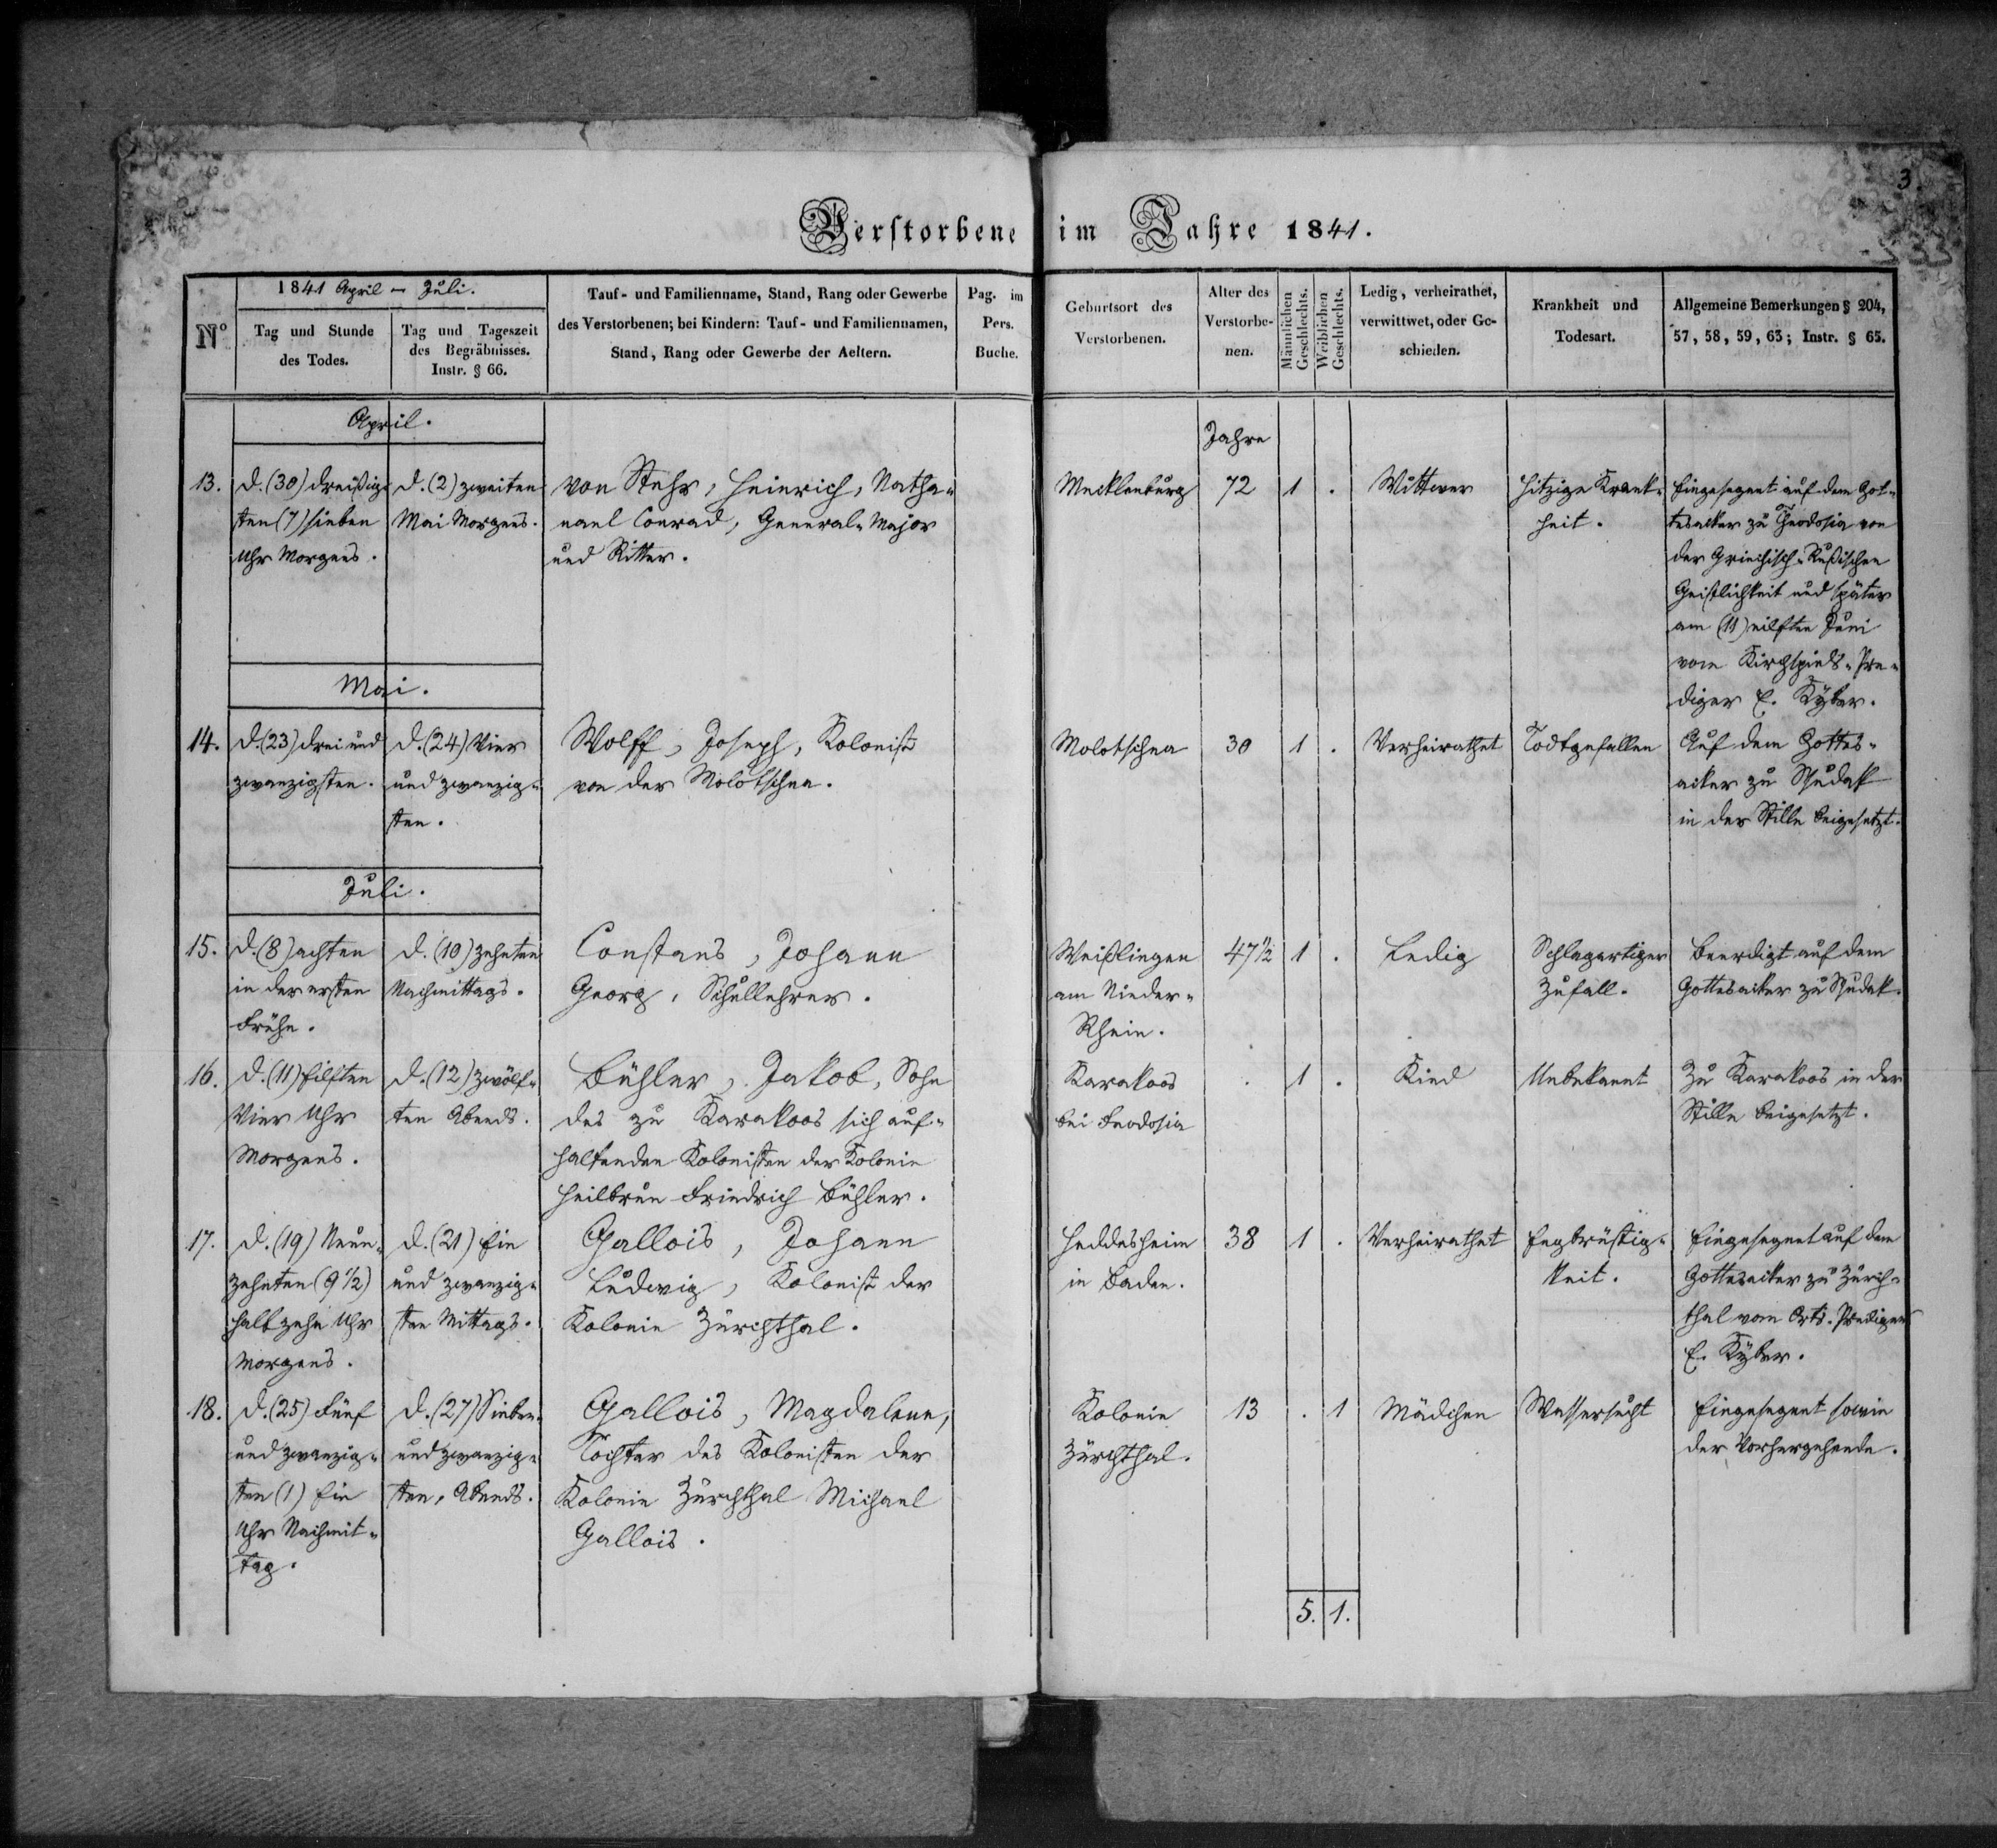 3.
Verstorbene im Jahre 1841.
1841 April – Juli.
Nº
Tag und Stunde
des Todes.
Tag und Tageszeit
des Begräbnisses.
Instr. § 66.
Tauf- und Familienname, Stand, Rang oder Gewerbe
des Verstorbenen; bei Kindern: Tauf- und Familiennamen,
Stand, Rang oder Gewerbe der Aeltern.
Pag. im
Pers.
Buche.
Geburtsort des
Verstorbenen.
Alter des
Verstorbe-
nen.
Männlichen
Geschlechts.
Weiblichen
Geschlechts.
Ledig, verheirathet,
verwittwet, oder Ge-
schieden.
Krankheit und
Todesart.
Allgemeine Bemerkungen § 204,
57, 58, 59, 63; Instr. § 65.
April.
Jahre
13.
d. (30) dreißig-
ten (7) sieben
Uhr Morgens.
d. (2) zweiten
Mai Morgens.
von Stehr, Heinrich, Natha-
nael Conrad, General-Major
und Ritter.
Mecklenburg
72
1
.
Wittwer
Hitzige Krank-
heit.
Eingesegnet auf dem Got-
tesacker zu Theodosia von
der Griechisch-Rußischen
Geistlichkeit und später
am (11) eilften Juni
vom Kirchspiels-Pre-
diger E. Kyber.
Mai.
14.
d. (23) drei und
zwanzigsten.
d. (24) Vier
und zwanzig-
sten.
Wolff, Joseph, Kolonist
von der Molotschna.
Molotschna
30
1
.
Verheirathet
Todtgefallen
Auf dem Gottes-
acker zu Sudak
in der Stille beigesetzt.
Juli.
15.
d. (8) achten
in der ersten
Frühe.
d. (10) zehnten
Nachmittags.
Constans, Johann
Georg, Schullehrer.
Weißlingen
am Nieder-
Rhein.
47½
1
.
Ledig
Schlagartiger
Zufall.
Beerdigt auf dem
Gottesacker zu Sudak.
16.
d. (11) Eilften
Vier Uhr
Morgens.
d. (12) zwölf-
ten Abends.
Bühler, Jakob, Sohn
des zu Karakoos sich auf-
haltenden Kolonisten der Kolonie
Heilbrun Friedrich Bühler.
Karakoos
bei Feodosia
.
1
.
Kind
Unbekannt
Zu Karakoos in der
Stille beigesetzt.
17.
d. (19) Neun-
zehnten (9½)
halb zehn Uhr
Morgens.
d. (21) Ein
und zwanzig-
sten Mittags.
Gallois, Johann
Ludwig, Kolonist der
Kolonie Zürchthal.
Heddesheim
in Baden.
38
1
.
Verheirathet
Engbrüstig-
keit.
Eingesegnet auf dem
Gottesacker zu Zürch-
thal vom Orts-Prediger
E. Kyber.
18.
d. (25) Fünf
und zwanzig-
sten (1) Ein
Uhr Nachmit-
tag.
d. (27) Sieben
und zwanzig-
sten, Abends.
Gallois, Magdalena,
Tochter des Kolonisten der
Kolonie Zürchthal Michael
Gallois.
Kolonie
Zürchthal.
13
.
1
Mädchen
Wassersucht
Eingesegnet sowie
der Vorhergehende.
5. 1.